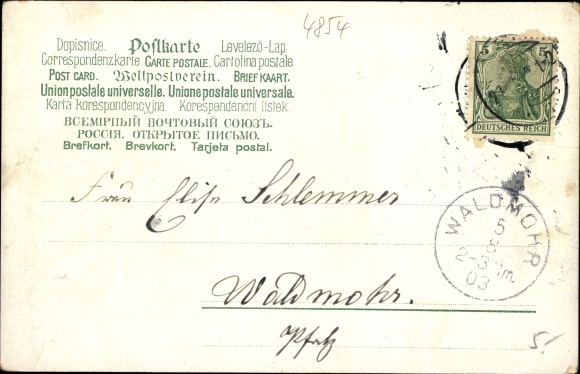 4854
Dopisnice. Postkarte Levelező-Lap.
Correspondenzkarte CARTE POSTALE. Cartolina postale.
POST CARD. Weltpostverein. BRIEFKAART.
Union postale universelle. Unione postale universale.
Karta korespondencyjna. Korespondenčni listek.
ВСЕМІРНЫЙ ПОЧТОВЫЙ СОЮЗЪ.
РОССІЯ. ОТКРЫТОЕ ПИСЬМО.
Brefkort. Brevkort. Tarjeta postal.
5 5
DEUTSCHES REICH
Frau Elise Schlemmer
WALDMOHR
5
2-3 Nm.
03
Waldmohr.
Pfalz
5.